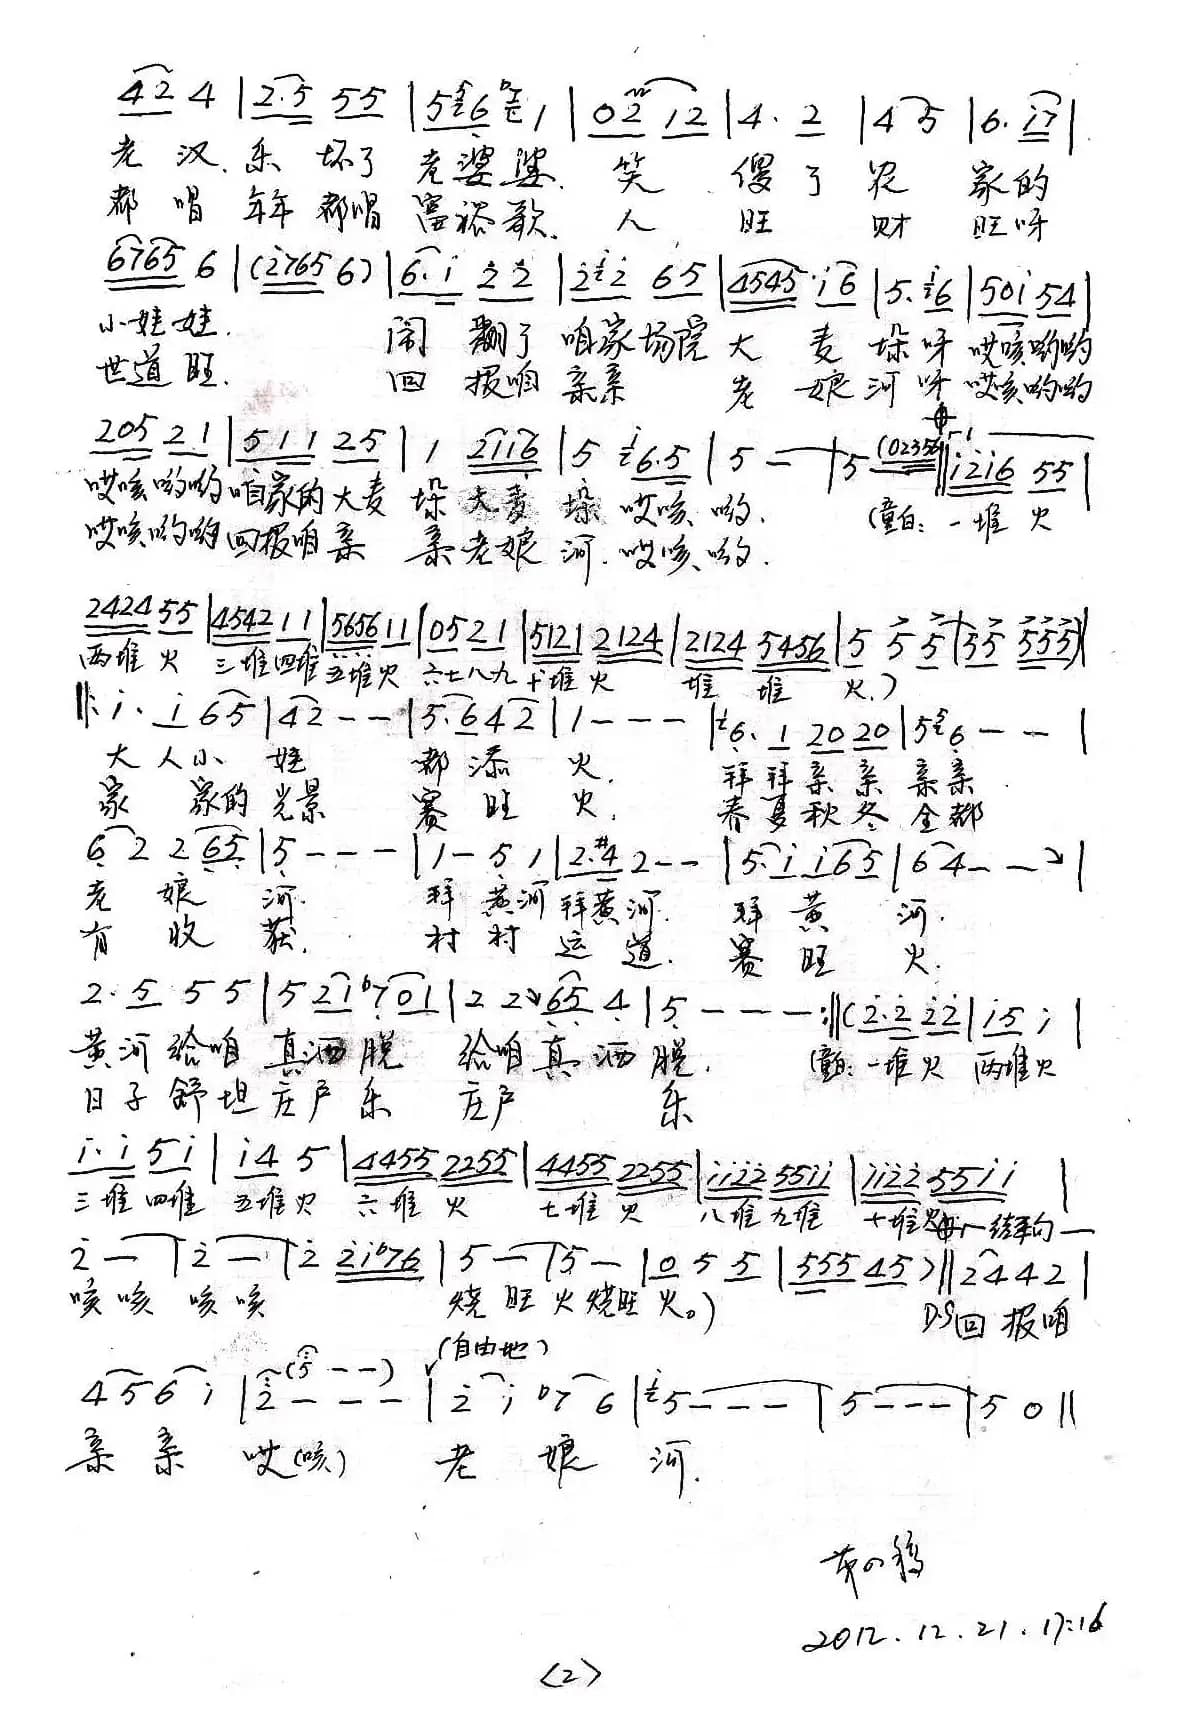 4 2 4 | 2· 5 5 5 | 5 6 1 | 0 2 1 2 | 4· 2 | 4 5 | 6· i 7 |
老汉、乐坏了老婆婆、笑傻了农家的
都唱年年都唱富裕歌、人旺财旺呀
6765 6 | (2765 6) | 6· i 2 2 | 2 2 6 5 | 4545· i 6 | 5· 6 | 50i 54 |
小娃娃. 闹翻了咱家场院大麦垛呀哎咳哟哟
世道旺. 回报咱亲亲老娘河呀哎咳哟哟
205 21 | 511 25 | 1 2116 | 5 6·5 | 5 — | 5 (02356 | i2i6 55 |
哎咳哟哟咱家的大麦垛大麦垛哎咳、哟. (童白:一堆火
哎咳哟哟回报咱亲亲老娘河.哎咳、哟.
2424 55 | 4542 11 | 5656 11 | 05 21 | 5121 2124 | 2124 5456 | 5 5 5 | 55 555) |
两堆火 三堆四堆五堆火 六七八九十堆火 堆堆火.)
‖: i· i 6 5 | 4 2 - - | 5· 6 4 2 | 1 - - - | 6· 1 20 20 | 5 6 - - |
大人小娃都添火. 拜拜亲亲亲亲
家家的光景赛旺火. 春夏秋冬全都
6 2 2 65 | 5 - - - | 1 - 5 1 | 2· #4 2 - - | 5· i i 6 5 | 6 4 - - |
老娘河. 拜黄河拜黄河. 拜黄河.
有收获. 村村运道. 赛旺火.
2· 5 5 5 | 5 21 b7 01 | 2 2 65 4 | 5 - - - :‖ (2·2 22 | i5 i |
黄河给咱真洒脱给咱真洒脱. (童白:一堆火两堆火
日子舒坦庄户乐庄户乐
i· i 5 i | i 4 5 | 4455 2255 | 4455 2255 | ii22 55ii | ii22 55i i |
三堆四堆五堆火六堆火七堆火八堆九堆十堆火 结束句
2 — | 2 — | 2 2ib76 | 5 — | 5 — | 0 5 5 | 555 45) ‖ 2 4 4 2 |
咳咳咳咳 烧旺火烧旺火。) D.S回报咱
(5 - -) (自由地)
4 5 6 i | 2 - - - | 2 i b7 6 | 5 - - - | 5 - - - | 5 0 ‖
亲亲哎(咳)老娘河.
2012.12.21.17:16
<2>